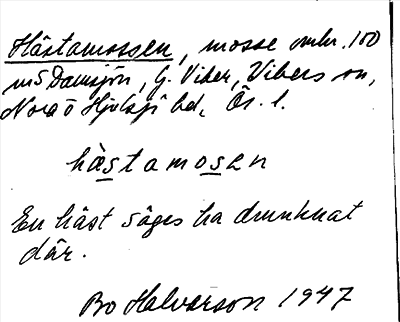 Hästamossen, mosse omkr. 100
m S Damsjön, G. Viker, Vikers sn,
Nora o Hjulsjö bd, Ör. l.
hàstamosen
En häst säges ha drunknat
där.
Bo Halvarson 1947